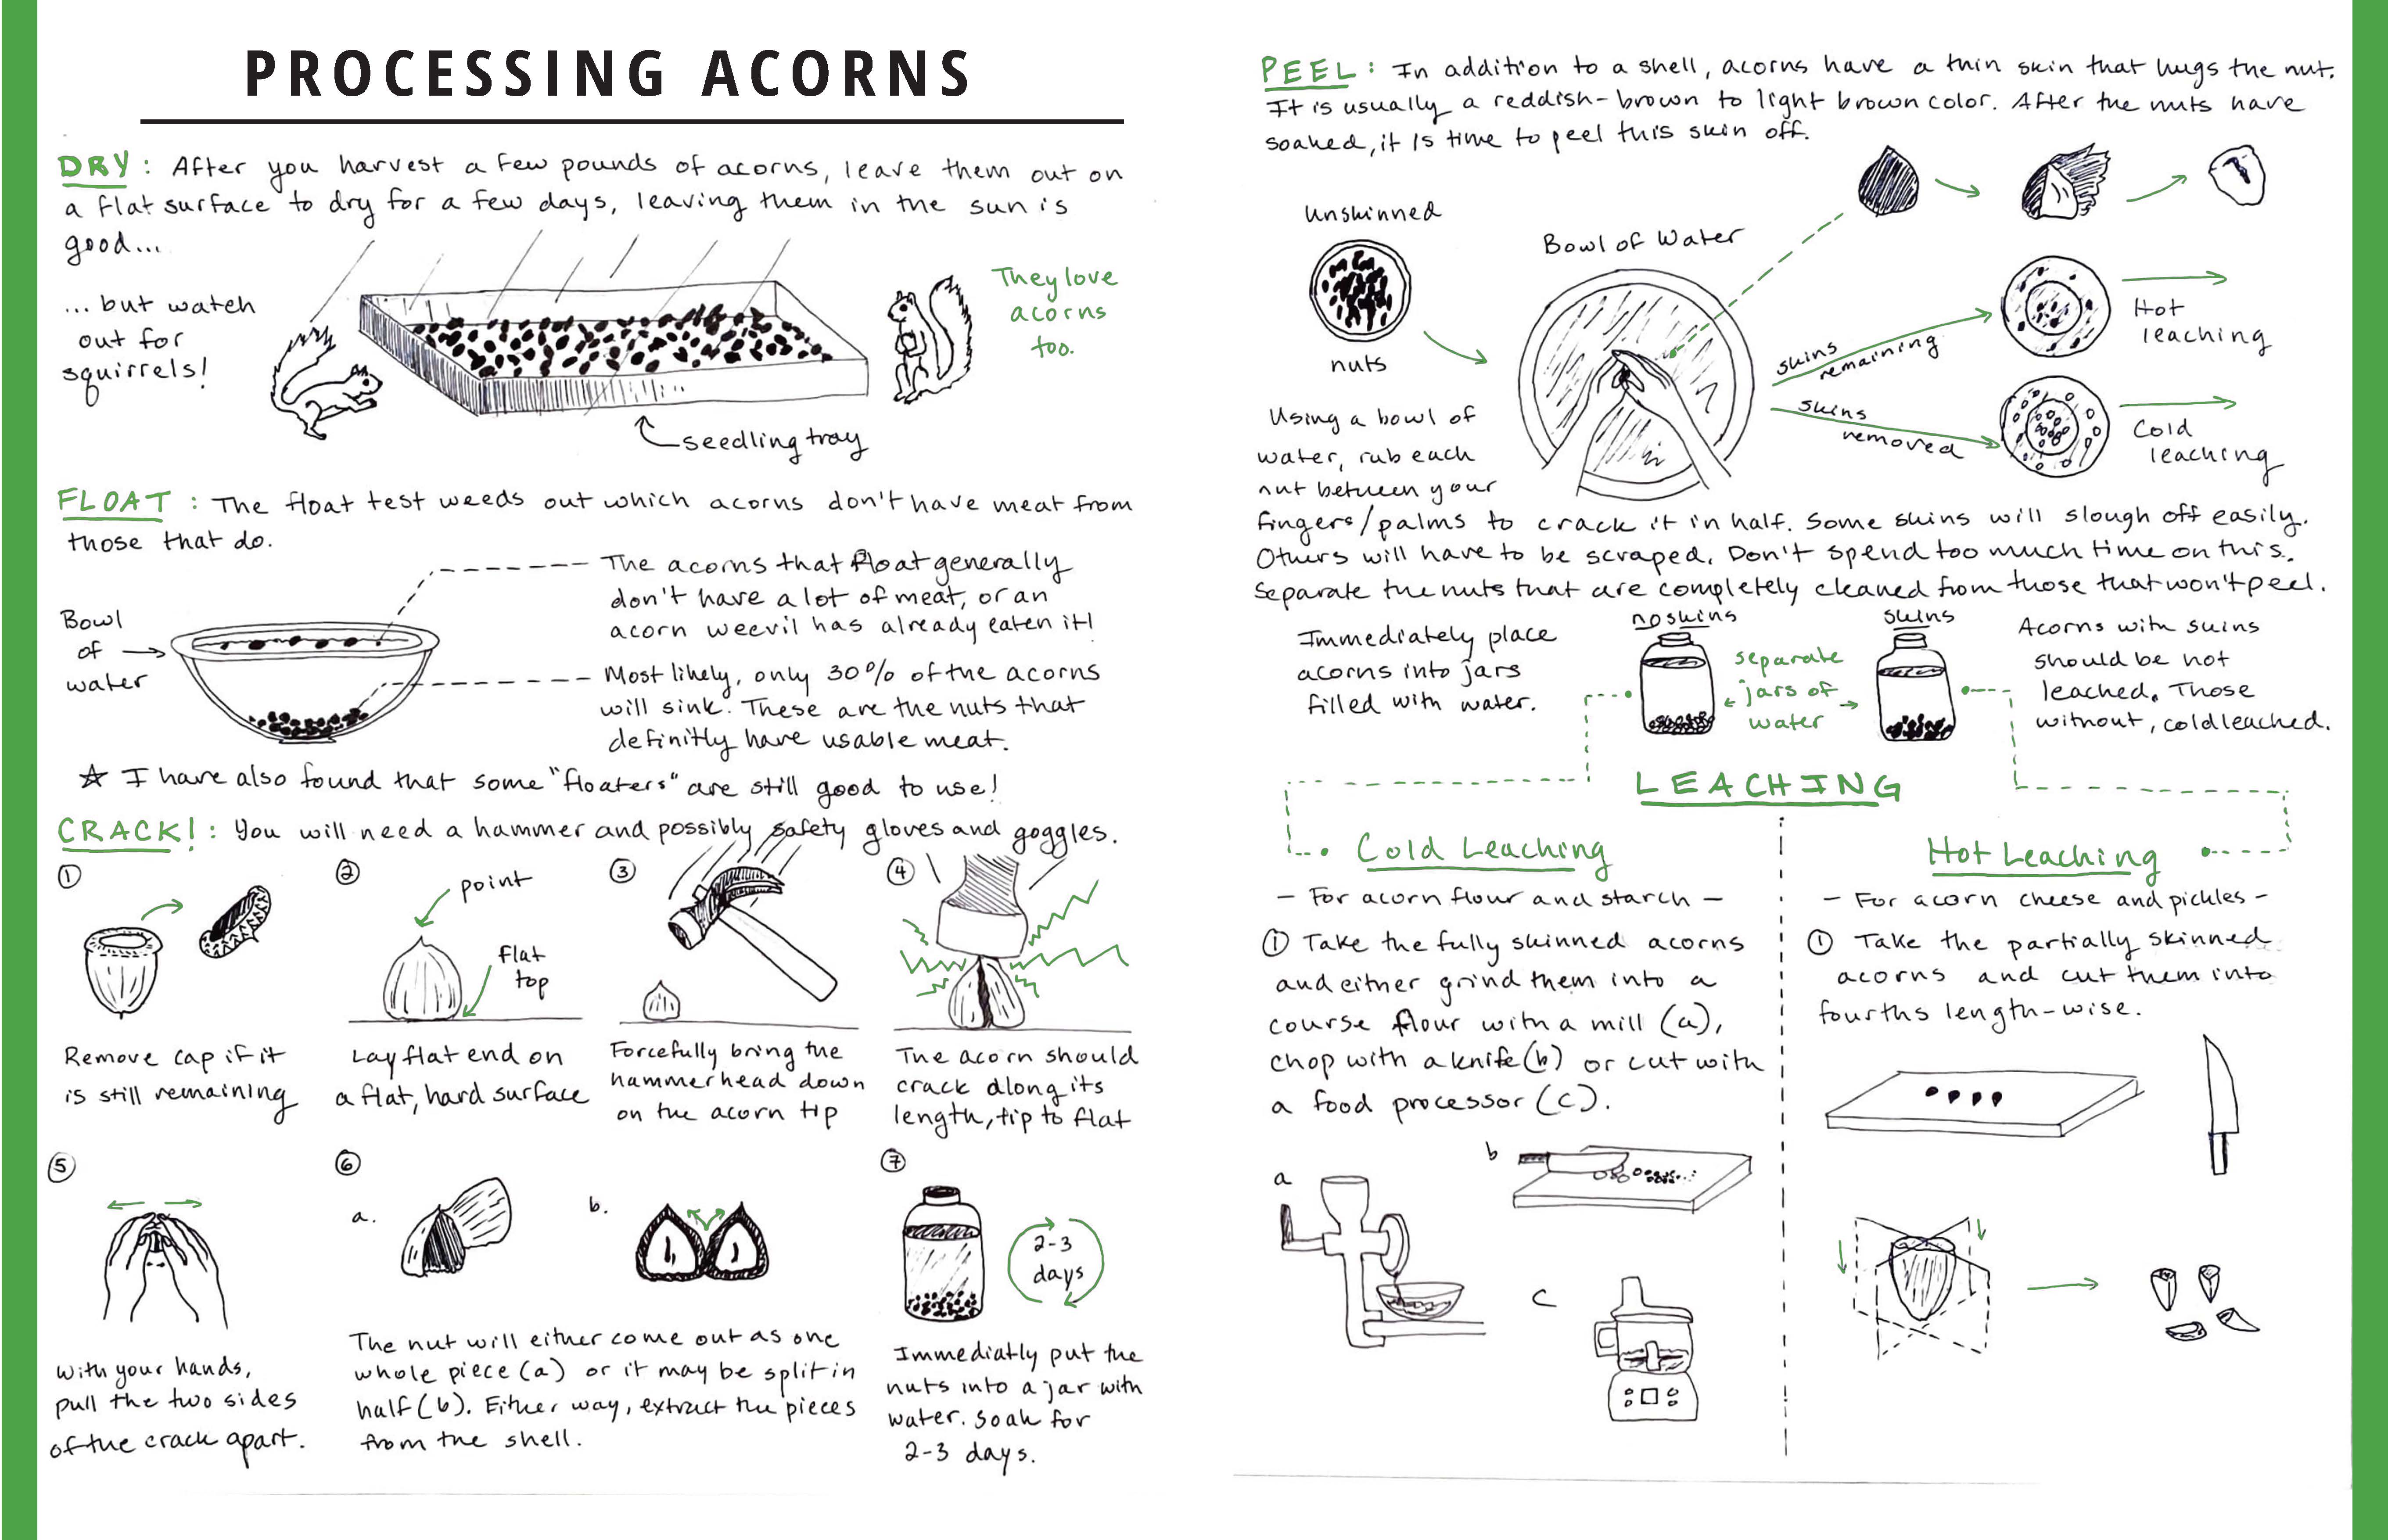 PROCESSING ACORNS
DRY: After you harvest a few pounds of acorns, leave them out on
a flat surface to dry for a few days, leaving them in the sun is
good...
... but watch
out for
squirrels!
They love
acorns
too.
seedling tray
FLOAT: The float test weeds out which acorns don't have meat from
those that do.
Bowl
of
water
The acorns that float generally
don't have a lot of meat, or an
acorn weevil has already eaten it!
Most likely, only 30% of the acorns
will sink. These are the nuts that
definitly have usable meat.
☆ I have also found that some "floaters" are still good to use!
CRACK!: You will need a hammer and possibly safety gloves and goggles.
①
Remove cap if it
is still remaining
②
point
flat
top
Lay flat end on
a flat, hard surface
③
Forcefully bring the
hammerhead down
on the acorn tip
④
The acorn should
crack along its
length, tip to flat
⑤
with your hands,
pull the two sides
of the crack apart.
⑥
a.
b.
The nut will either come out as one
whole piece (a) or it may be split in
half (b). Either way, extract the pieces
from the shell.
⑦
2-3
days
Immediatly put the
nuts into a jar with
water. soak for
2-3 days.
PEEL: In addition to a shell, acorns have a thin skin that hugs the nut.
It is usually a reddish-brown to light brown color. After the nuts have
soaked, it is time to peel this skin off.
Unskinned
nuts
Bowl of Water
skins
remaining
Hot
leaching
skins
removed
Cold
leaching
Using a bowl of
water, rub each
nut between your
fingers/palms to crack it in half. Some skins will slough off easily.
Others will have to be scraped. Don't spend too much time on this.
Separate the nuts that are completely cleaned from those that won't peel.
Immediately place
acorns into jars
filled with water.
no skins
separate
jars of
water
skins
Acorns with skins
should be hot
leached. Those
without, cold leached.
LEACHING
Cold Leaching
- For acorn flour and starch -
① Take the fully skinned acorns
and either grind them into a
course flour with a mill (a),
chop with a knife (b) or cut with
a food processor (c).
a
b
c
Hot Leaching
- For acorn cheese and pickles -
① Take the partially skinned
acorns and cut them into
fourths length-wise.